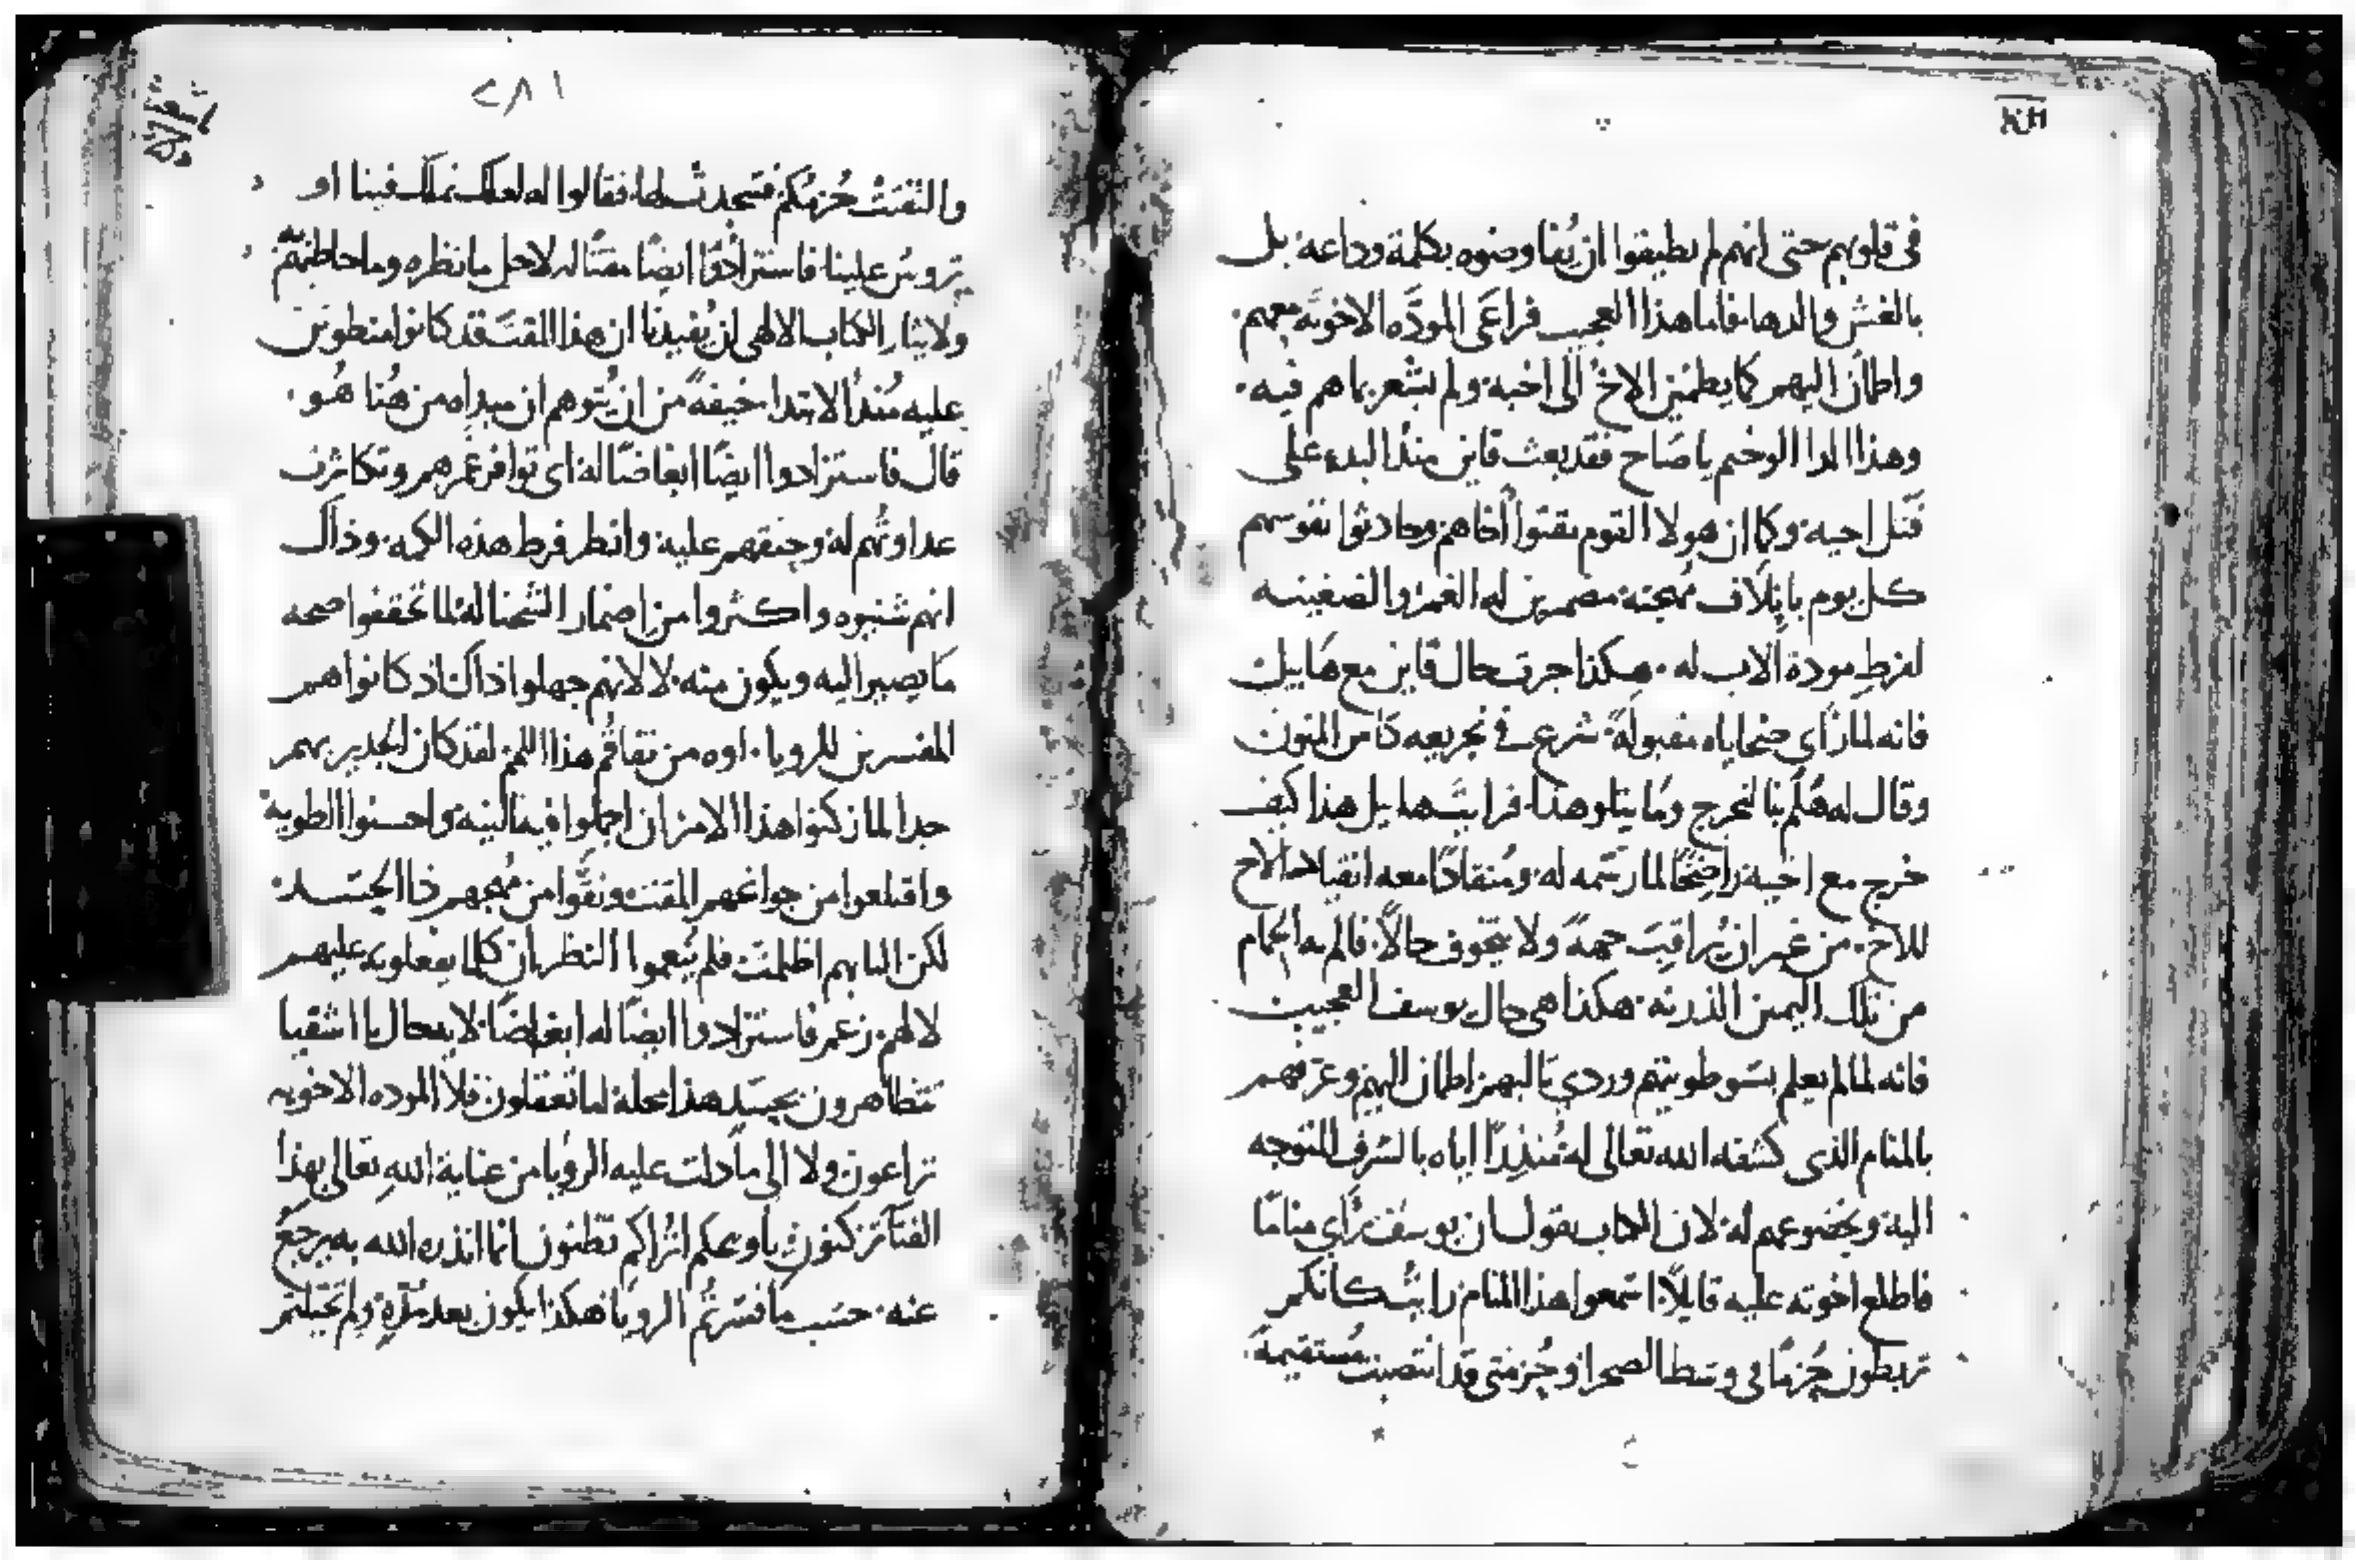 في قلوبهم حتى انهم لم يطيقوا ان يُفاوضوه بكلمة وداعه بل
بالغش والدها فاما هذا العجيب فراعَى المودَّه الاخويَه معهم
واطمان اليهم كما يطمئن الاخ الى اخيه ولم يشعر بما هم فيه
وهذا الدا الوخيم يا صَاح فقد بعث قاين منذ البدء على
قتل اخيه وكما ان هولا القوم مقتوا أخاهم وحادثوا نفوسهم
كل يوم باتلاف مُهجته مضمرين له الغمز والضغينه
لفرط مودة الاب له هكذا جرت حال قاين مع هَابيل
فانه لما رَأي ضحاياه مقبولةً شرع في تجريعه كاس المنون
وقال له هَلُم بنا لنخرج وما يتلو هذا فرايت هابيل هذا كيف
خرج مع اخيه راضخًا لما رَسَمه له ومُنقادًا معه انقياد الاخ
للاخ من غير ان يُراقِبَ جهةً ولا يتخوف حالاً فالم به الحمام
من تلك اليمين الدرنه هكذا هي حال يوسف العجيب
فانه لما لم يعلم بسَو طويتهم وردي نياتهم اطمان اليهم وعرفهم
بالمنام الذي كشفه الله تعالى له مُنذِرًا اياه بالشرف المتوجه
اليه وبخضوعهم له لان الكتاب يقول ان يوسف رَأي منامًا
فاطلع اخوته عليه قايلاً اسمعوا هذا المنام رايتُ كانكم
تربطون حُزمًا في وسَط الصحرا وحُزمتي قد انتصبت مُستقيمةً
٢٨١
والتفتت حُزمُكم فسَجدت لها فقالوا له لعلك تملك فينا او
تروس علينا فاستزادوا ايضًا مقتًا له لاجل ما نظره وما خاطبهم به
ولايثار الكتاب الالهي ان يُفيدنا ان هذا المقتَ قد كانوا منطوين
عليه مُنذ الابتدا خيفةً من ان يُتوهم ان مبداه من هُنا هُو
قال فاستزادوا ايضًا ابغاضًا له اي توافر غرهم وتكاثرت
عداوتُهم له وحنقهم عليه وانظر فرط هذه الكمه وذاك
انهم شنيوه واكثروا من اضمار الشحنا له لما تحققوا صحه
مَا يصير اليه ويكون منه لا لانهم جهلوا ذاك اذ كانوا هم
المفسرين للرويا اوه من تفاقُم هذا اللمم لقد كان الجدير بهم
جدا لما زكنوا هذا الامر ان اجملوا فيه النيه واحسنوا الطوية
واقتلعوا من جواغهم المقت ونقَّوا من مُهجهم ذا الحسَد
لكن البابهم اظلمت فلم يُنعموا النظر ان كلما يفعلونه عليهم
لا لهم زعم فاستزادوا ايضًا له ابغاضًا لاية حال يا اشقيا
تتظاهرون بحسَد هذا محله لما تعقلون فلا الموده الاخويه
تراعون ولا الي ما دلت عليه الرويا من عناية الله تعالى بهذا
الفتَا تركنون يا ويحكم اتراكم تظنون انما انذره الله به يرجع
عنه حسَب ما فسَرتُم الرويا هكذا يكون بعد مُدَّةٍ ولم تخيلتم